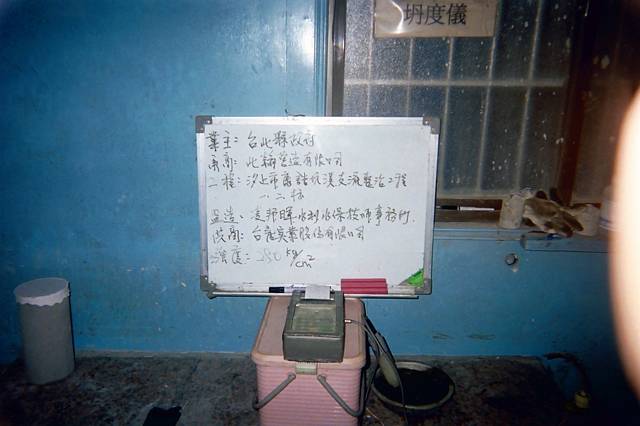 坍度儀
業主：台北縣政府
承商：北赫營造有限公司
工程：汐止市康誥坑溪支流整治工程
監造：凌邦暉水利水保技師事務所
供商：台產實業股份有限公司
強度：280 kg/cm²